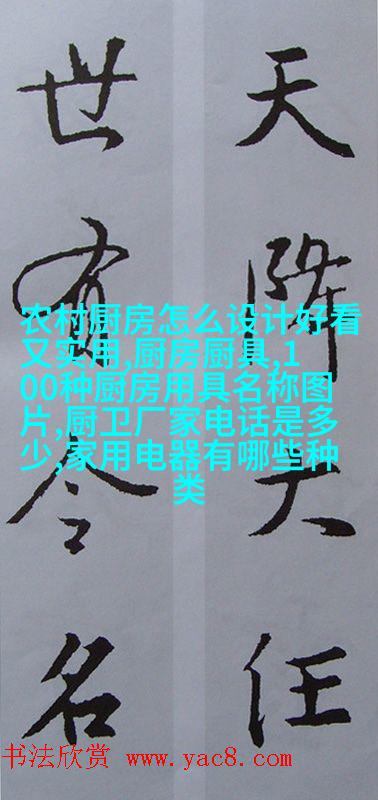 天降大任
世有令名
农村厨房怎么设计好看
又实用,厨房厨具,1
00种厨房用具名称图
片,厨卫厂家电话是多
少,家用电器有哪些种
类
书法欣赏 www.yac8.com